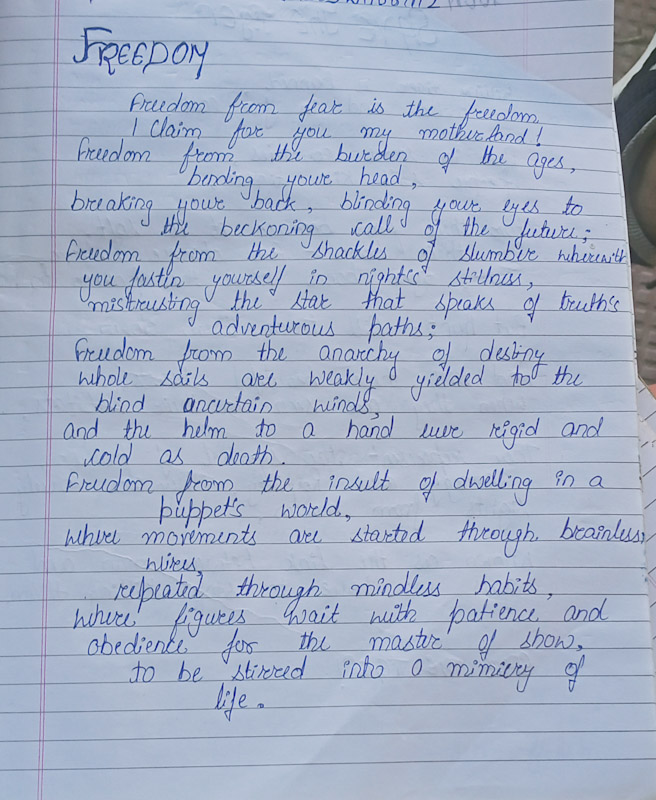 FREEDOM
Freedom from fear is the freedom
I Claim for you my motherland!
Freedom from the burden of the ages,
bending your head,
breaking your back, blinding your eyes to
the beckoning call of the future;
Freedom from the shackles of slumber wherewith
you fasten yourself in night's stillness,
mistrusting the star that speaks of truth's
adventurous paths;
Freedom from the anarchy of destiny
whole sails are weakly yielded to the
blind uncertain winds,
and the helm to a hand ever rigid and
cold as death.
Freedom from the insult of dwelling in a
puppet's world,
where movements are started through brainless
wires,
repeated through mindless habits,
where figures wait with patience and
obedience for the master of show,
to be stirred into a mimicry of
life.